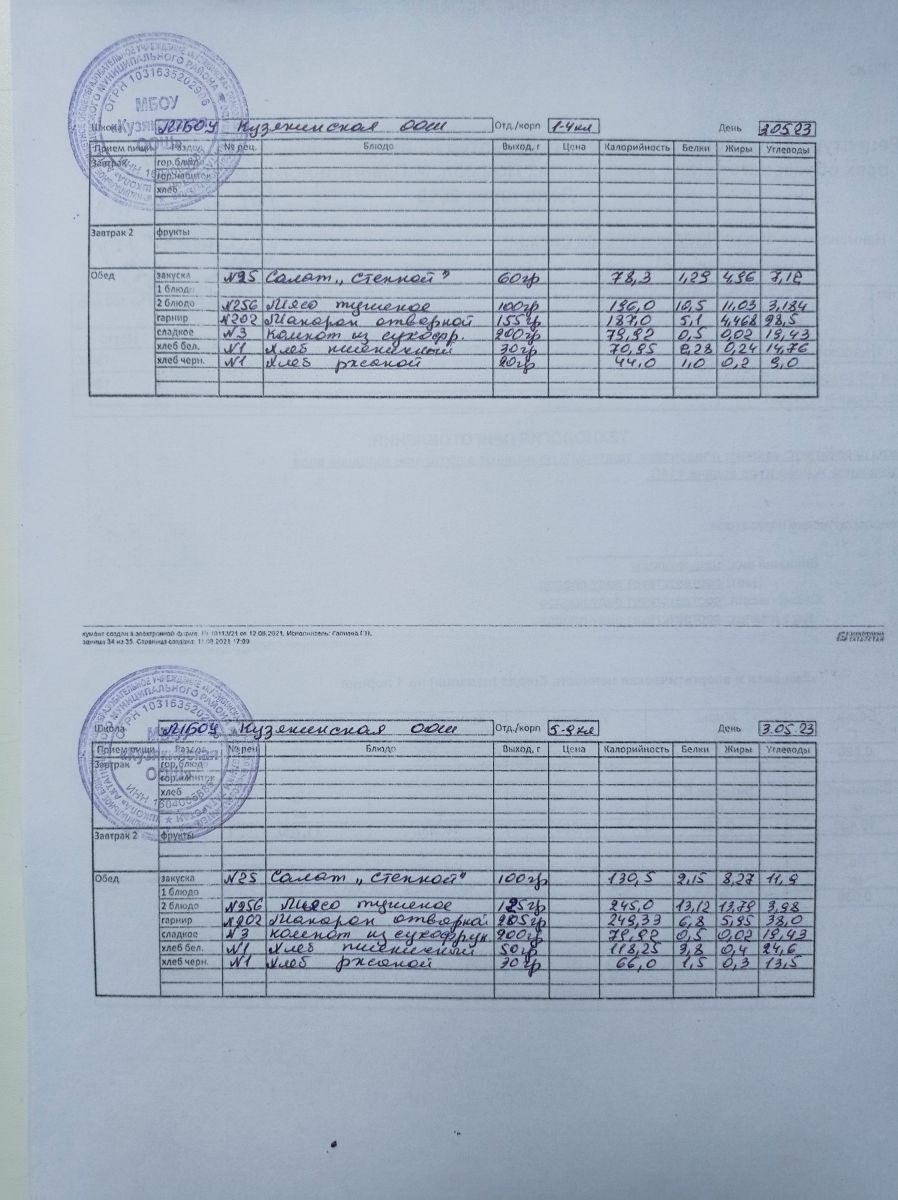 Школа МБОУ Кузякинская ООШ Отд./корп 1-4 кл День 3.05.23
Прием пищи Раздел № рец. Блюдо Выход, г Цена Калорийность Белки Жиры Углеводы
Завтрак гор.блюдо
гор.напиток
хлеб
Завтрак 2 фрукты
Обед закуска №25 Салат „Степной" 60гр 78,3 1,29 4,96 7,12
1 блюдо
2 блюдо №256 Мясо тушеное 100гр 196,0 10,5 11,03 3,184
гарнир №202 Макарон отворной 155гр 187,0 5,1 4,468 28,5
сладкое №3 Компот из сухофр. 200гр 79,92 0,5 0,02 19,43
хлеб бел. №1 Хлеб пшеничный 30гр 70,95 2,28 0,24 14,76
хлеб черн. №1 Хлеб ржаной 20гр 44,0 1,0 0,2 9,0
МБОУ
Школа МБОУ Кузякинская ООШ Отд./корп 5-9 кл День 3.05.23
Прием пищи Раздел № рец Блюдо Выход, г Цена Калорийность Белки Жиры Углеводы
Завтрак гор.блюдо
гор.напиток
хлеб
Завтрак 2 фрукты
Обед закуска №25 Салат „Степной" 100гр 130,5 2,15 8,27 11,9
1 блюдо
2 блюдо №256 Мясо тушеное 125гр 245,0 13,12 13,79 3,98
гарнир №202 Макарон отворной 205гр 249,33 6,8 5,95 38,0
сладкое №3 Компот из сухофрук 200гр 79,92 0,5 0,02 19,43
хлеб бел. №1 Хлеб пшеничный 50гр 118,25 3,8 0,4 24,6
хлеб черн. №1 Хлеб ржаной 30гр 66,0 1,5 0,3 13,5